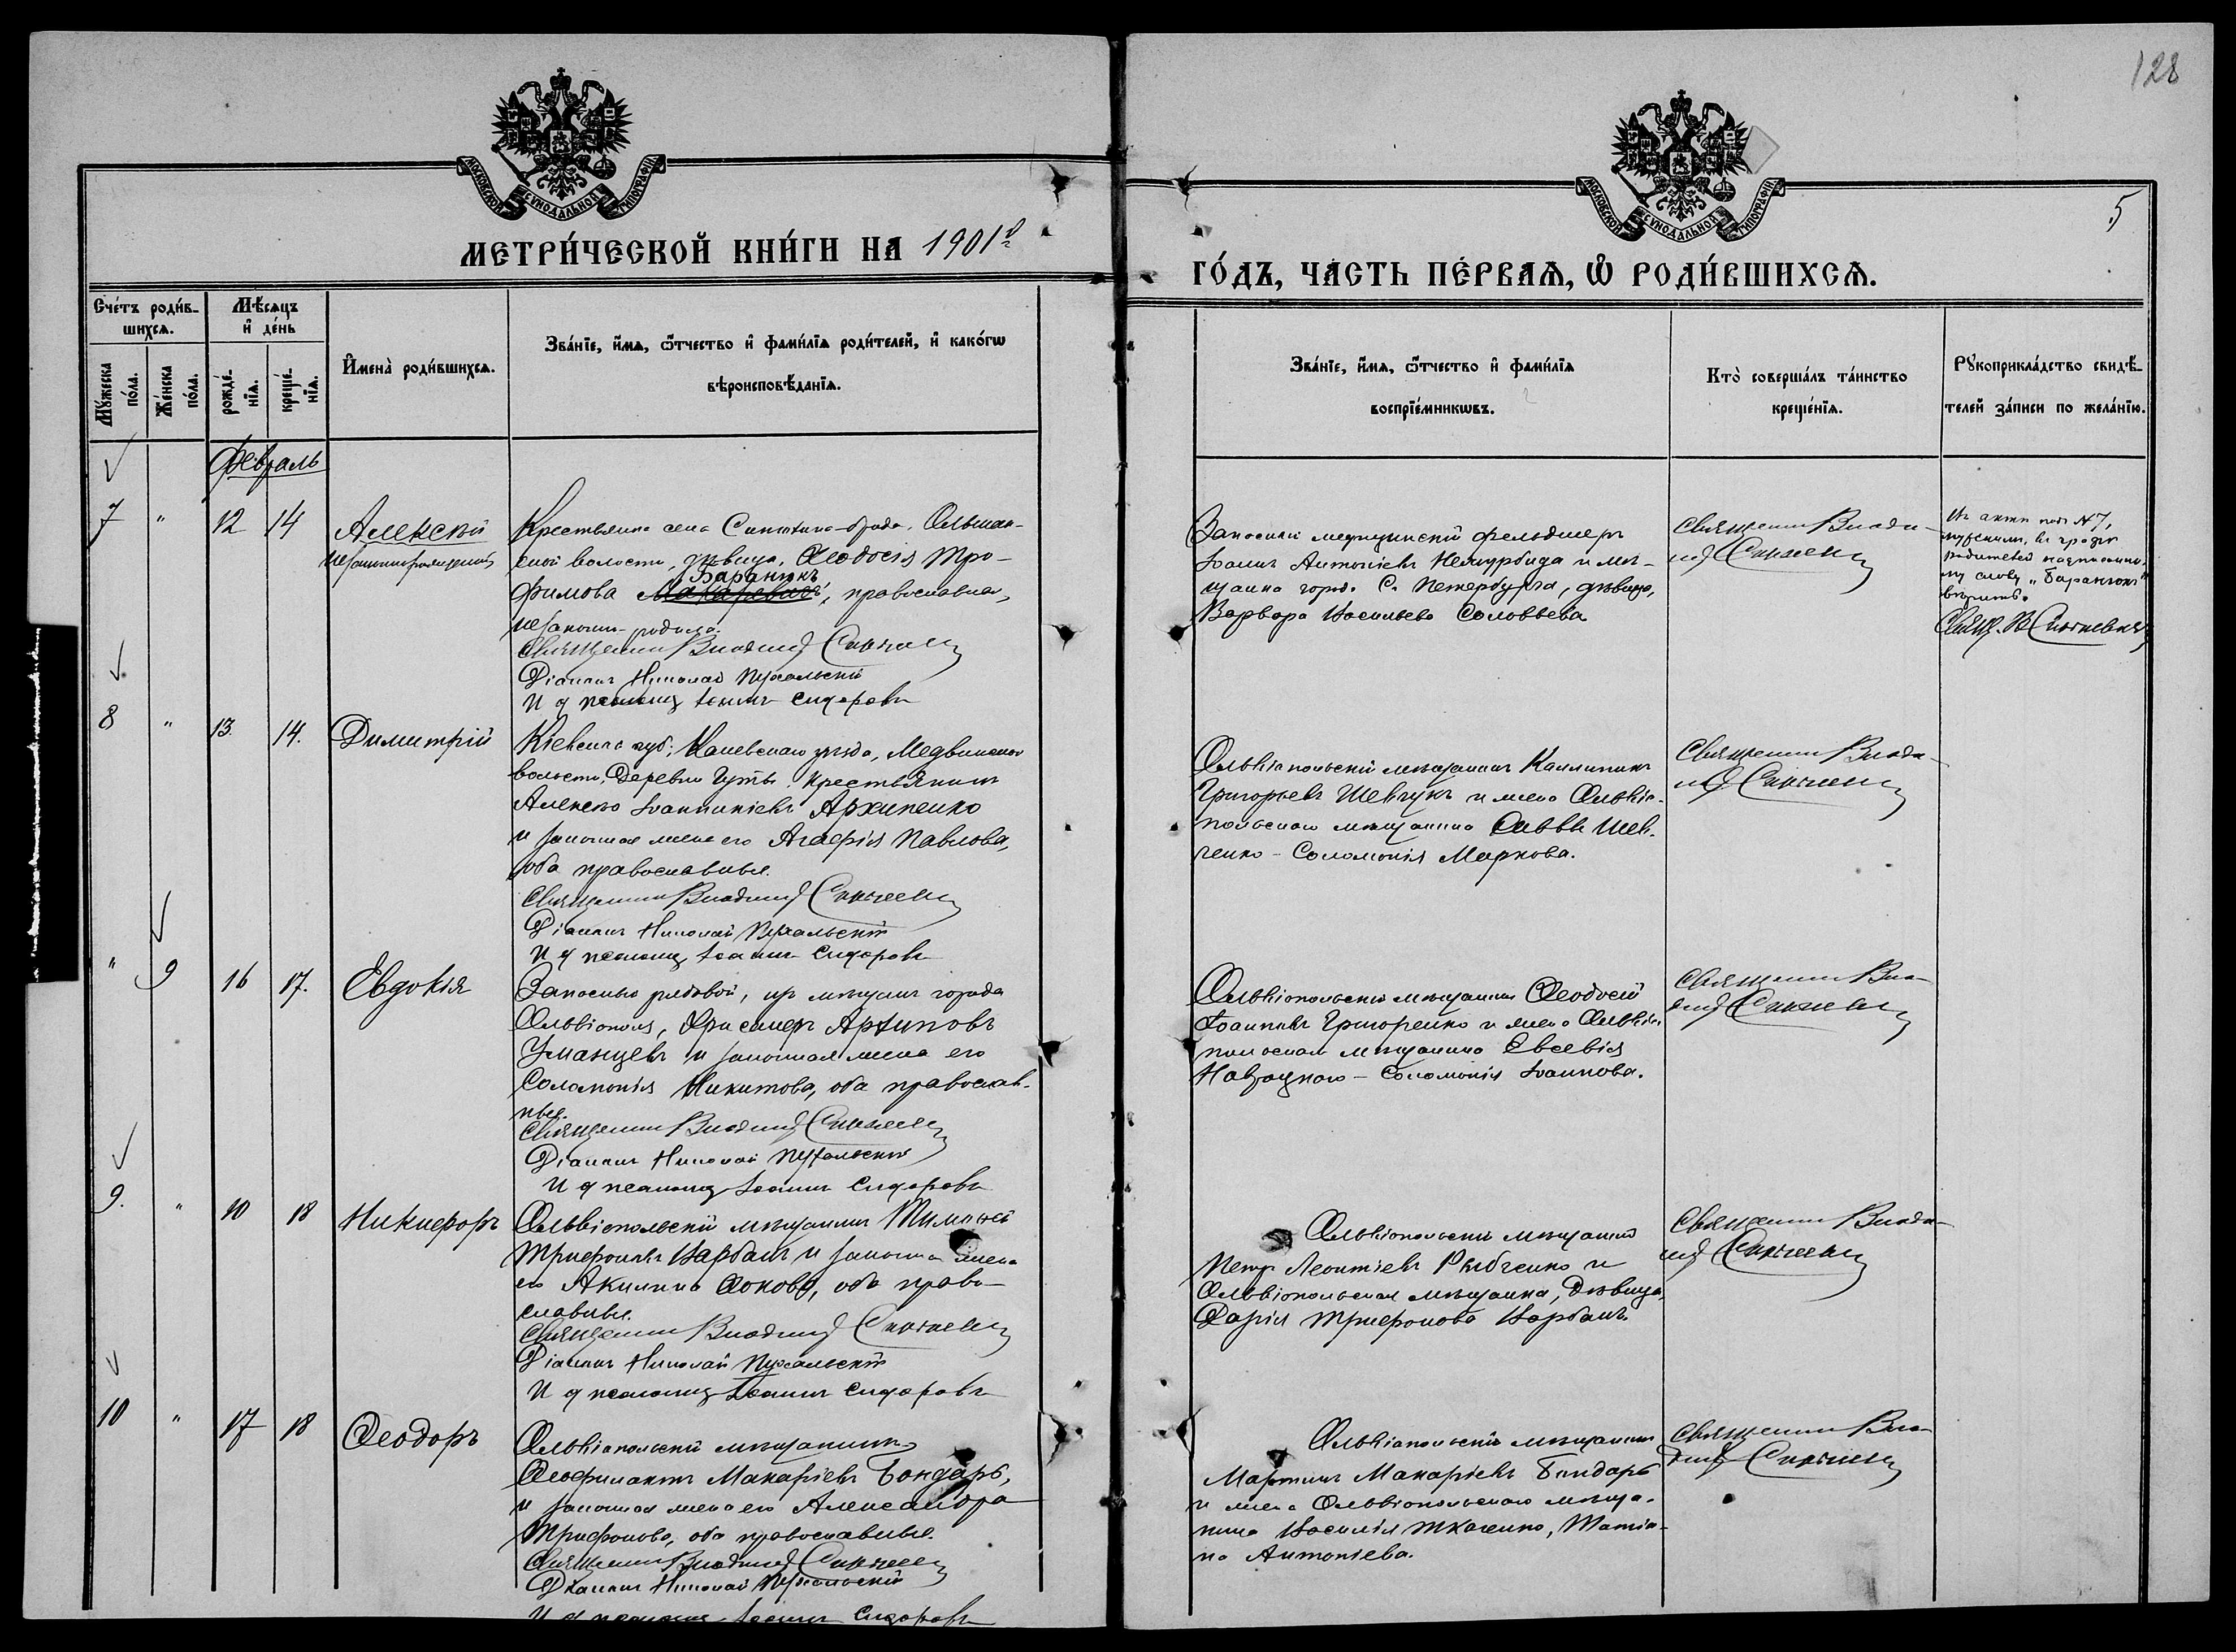 128
МОСКОВСКОЙ СУНОДАЛЬНОЙ ТИПОГРАФІИ
МОСКОВСКОЙ СУНОДАЛЬНОЙ ТИПОГРАФІИ
5
МЕТРИ́ЧЕСКОЙ КНИ́ГИ НА 1901й
ГО́ДЪ, ЧА́СТЬ ПЕ́РВАѦ, Ѽ РОДИ́ВШИХСѦ.
Сче́тъ роди́в-
шихсѧ.
Мꙋ́жеска по́ла.
Же́нска по́ла.
Мѣ́сѧцъ
и҆ де́нь
рожде́-
нїѧ.
креще́-
нїѧ.
И҆мена̀ роди́вшихсѧ.
Зва́нїе, и҆́мѧ, ѻ҆́тчество и҆ фами́лїѧ роди́телей, и҆ како́гѡ
вѣроисповѣ́данїѧ.
Зва́нїе, и҆́мѧ, ѻ҆́тчество и҆ фами́лїѧ
воспрїе́мникѡвъ.
Кто̀ соверша́лъ та́инство
креще́нїѧ.
Рꙋкоприкла́дство свидѣ́-
телей за́писи по жела́нїю.
Февраль
7 " 12 14 Алексѣй
незаконнорожденный
Крестьянка села Синюхина-брода, Ольшан-
ской волости, дѣвица, Ѳеодосія Тро-
Баранюкъ
фимова Макаревичъ, православна,
незаконно-родила.
Священникъ Владимір
Діаконъ Николай Пухальскій
И д псаломщ Іоаннъ Сидоровъ
Запасный медицинскій фельдшеръ
Іоаннъ Антоніевъ и мѣ-
щанка город. С. Петербурга, дѣвица,
Варвара Васильева Соловьева
Священникъ Влади-
мір
Въ актѣ подъ №7,
мужскимъ, въ графѣ
родителей надписанно-
му слову "Баранюкъ"
вѣрить.
Свящ. В
8 " 13 14. Димитрій
Кіевской губ; Каневскаго уѣзда, Медвинской
волости, Деревни Гуты крестьянинъ
Алексѣй Іоанникіевъ Архипенко
и законная жена его Агаѳія Павлова,
оба православные.
Священникъ Владимір
Діаконъ Николай Пухальскій
И д псаломщ Іоаннъ Сидоровъ
Ольвіопольскій мѣщанинъ Каллиникъ
Григорьевъ Шевчукъ и жена Ольвіо-
польскаго мѣщанина Саввы Шев-
ченко - Соломонія Маркова.
Священникъ Влади-
мір
" 9 16 17. Евдокія
Запасный рядовой, изъ мѣщанъ города
Ольвіополя, Архиповъ
Уманцевъ и законная жена его
Соломонія Никитова, оба православ-
ные.
Священникъ Владимір
Діаконъ Николай Пухальскій
И д псаломщ Іоаннъ Сидоровъ
Ольвіопольскій мѣщанинъ Ѳеодосій
Іоанновъ Григоренко и жена Ольвіо-
польскаго мѣщанина Евсевія
Навроцкаго - Соломонія Іоаннова.
Священникъ Вла-
димір
9. " 10 18 Никифоръ
Ольвіопольскій мѣщанинъ Тимоѳей
Трифоновъ Варбанъ и законная жена
его Акилина Ѳокова, оба право-
славные.
Священникъ Владимір
Діаконъ Николай Пухальскій
И д псаломщ Іоаннъ Сидоровъ
Ольвіопольскій мѣщанинъ
Петръ Леонтіевъ Рыбченко и
Ольвіопольская мѣщанка, дѣвица,
Дарія Трифонова Варбанъ.
Священникъ Влади-
мір
10 " 17 18 Ѳеодоръ
Ольвіопольскій мѣщанинъ
Ѳеофилактъ Макаріевъ Бондарь,
и законная жена его Александра
Трифонова, оба православные.
Священникъ Владимір
Діаконъ Николай Пухальскій
И д псаломщ Іоаннъ Сидоровъ
Ольвіопольскій мѣщанинъ
Мартинъ Макаріевъ Бондарь
и жена Ольвіопольскаго мѣща-
нина Василія Ткаченко, Татія-
на Антоніева.
Священникъ Вла-
димір